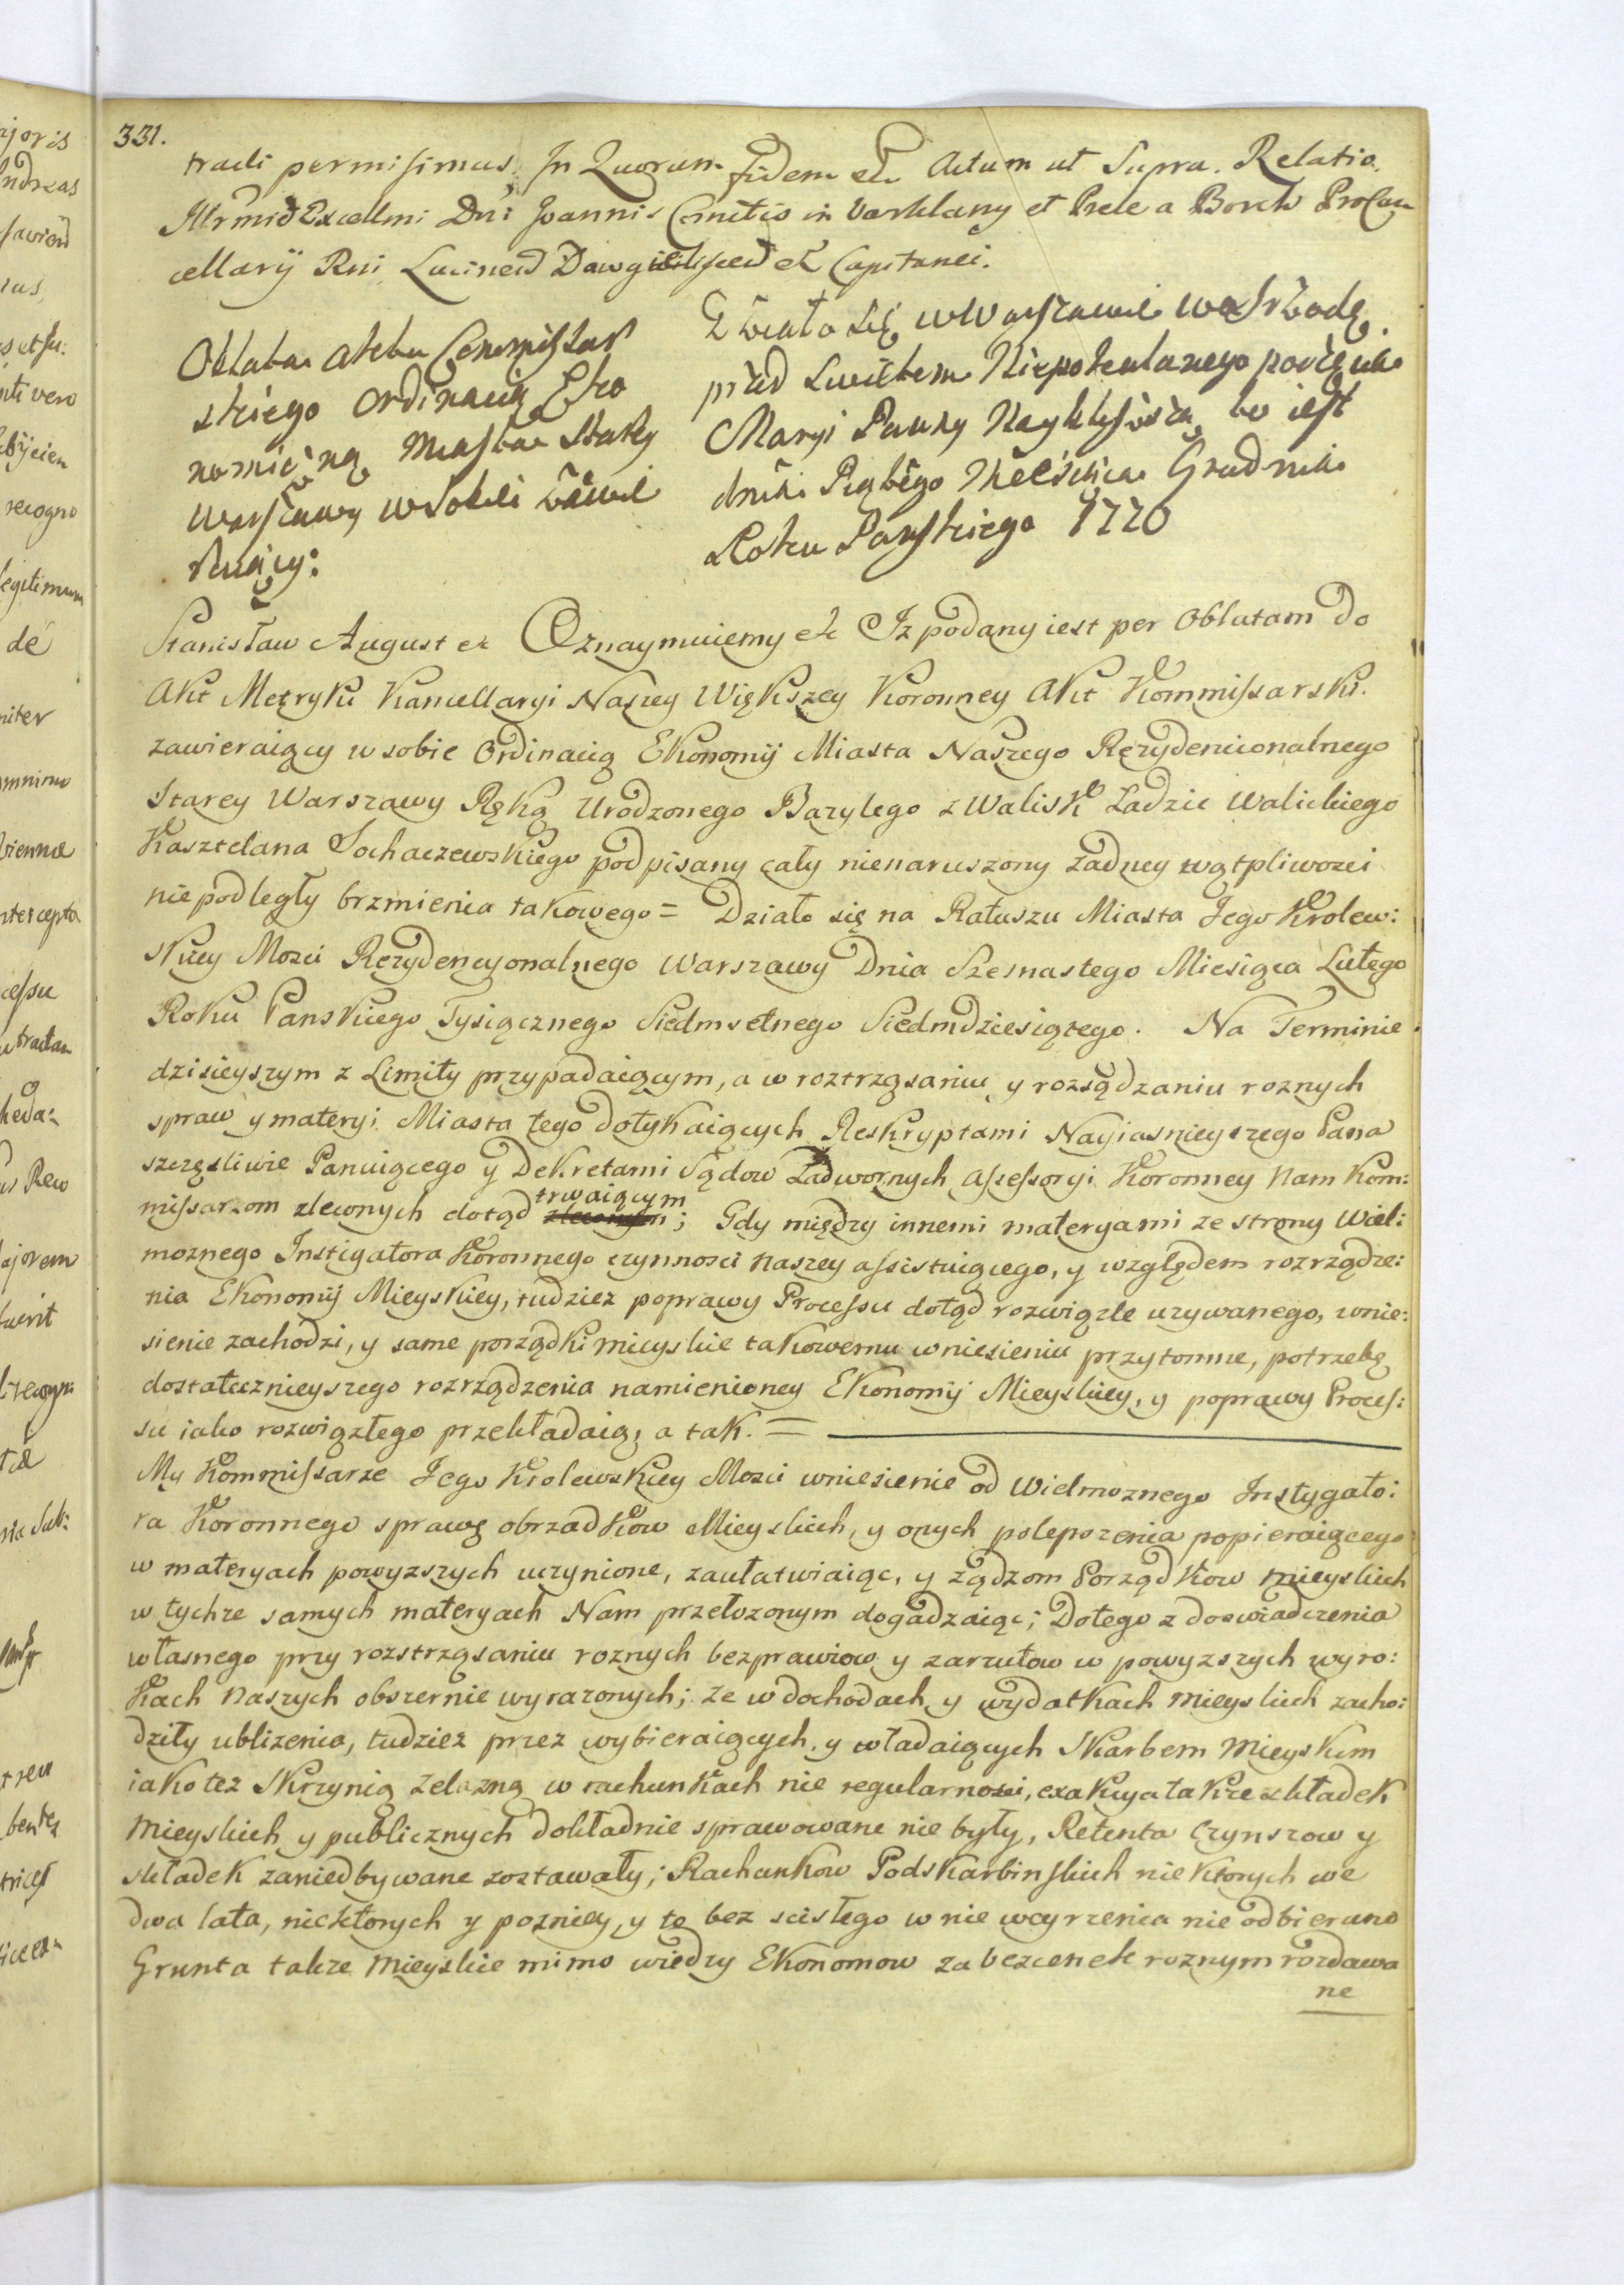 331.
tradi permisimus. In Quorum fidem etc Actum ut Supra. Relatio
Illrmi Excellmi Dni Joannis Comitis in Varklany et Prele a Borch Procan
cellary Rni Lucinen Capitanei.
Oblata Aktu Commissar
skiego Ordinacią Eko
nomiczną Miasta Stary
Warszawy w Sobie zawie
raiący:
Działo się w Warszawie we Srzodę
przed Swiętem Niepokalanego poczęcia
Maryi Panny Naybliższą to iest
dnia Piątego Miesiąca Grudnia
Roku Panskiego 1770
Stanisław August etc Oznaymuiemy etc Iz podany iest per Oblatam do
Akt Metryki Kancellaryi Naszey Większey Koronney Akt Kommissarski.
zawieraiący w sobie Ordinacią Ekonomij Miasta Naszego Rezydencionalnego
Starey Warszawy Ręką Urodzonego Bazylego z Walisk Ladzic Walickiego
Kasztelana Sochaczewskiego podpisany cały nienaruszony żadney wątpliwozci
niepodległy brzmienia takowego = Działo się na Ratuszu Miasta Jego Krolew:
skiey Mozci Rezydencyonalnego Warszawy Dnia Szesnastego Miesiąca Lutego
Roku Panskiego Tysiącznego Siedmsetnego Siedmdziesiątego. Na Terminie
dzisieyszym z Limity przypadaiącym, a w roztrząsaniu y rozsądzaniu roznych
spraw y materyi Miasta tego dotykaiących Reskryptami Nayiasnieyszego Pana
szczęsliwie Panuiącego y Dekretami Sądow Zadwornych Assessoryi Koronney Nam Kom:
missarzom zleconych dotąd trwaiącym; Gdy między innemi materyami ze strony Wiel:
moznego Instigatora Koronnego czynnosci Naszey assistuiącego, y względem rozrządze:
nia Ekonomij Mieyskiey, tudziez poprawy Processu dotąd rozwiązle uzywanego, wnie:
sienie zachodzi, y same porządki mieyskie takowemu wniesieniu przytomne, potrzebę
dostatecznieyszego rozrządzenia namienioney Ekonomij Mieyskiey, y poprawy Proces:
su iako rozwiązłego przekładaią; a tak. =
My Kommissarze Jego Krolewskiey Mosci wniesienie od Wielmoznego Instygato:
ra Koronnego sprawę obrzadkow Mieyskich, y onych polepszenia popieraiącego
w materyach powyzszych uczynione, zaułatwiaiąc, y żądzom Porządkow mieyskich
w tychze samych materyach Nam przełozonym dogadzaiąc; Dotego z doswiadczenia
własnego przy rozstrząsaniu roznych bezprawiow y zarzutow w powyzszych wyro:
kach Naszych obszernie wyrazonych; ze w dochodach y wydatkach mieyskich zacho:
dziły ublizenia, tudziez przez wybieraiących y władaiących Skarbem Mieyskim
iako tez Skrzynią Zelazną w rachunkach nie regularnosci, exakcya takze składek
Mieyskich y publicznych dokładnie sprawowane nie były, Retenta Czynszow y
składek zaniedbywane zostawały; Rachunkow Podskarbinskich niektorych we
dwa lata, niektorych y pozniey, y te bez scisłego w nie weyrzenia nie odbierano
Grunta takze Mieyskie mimo wiedzy Ekonomow za bezcenek roznym rozdawa
ne